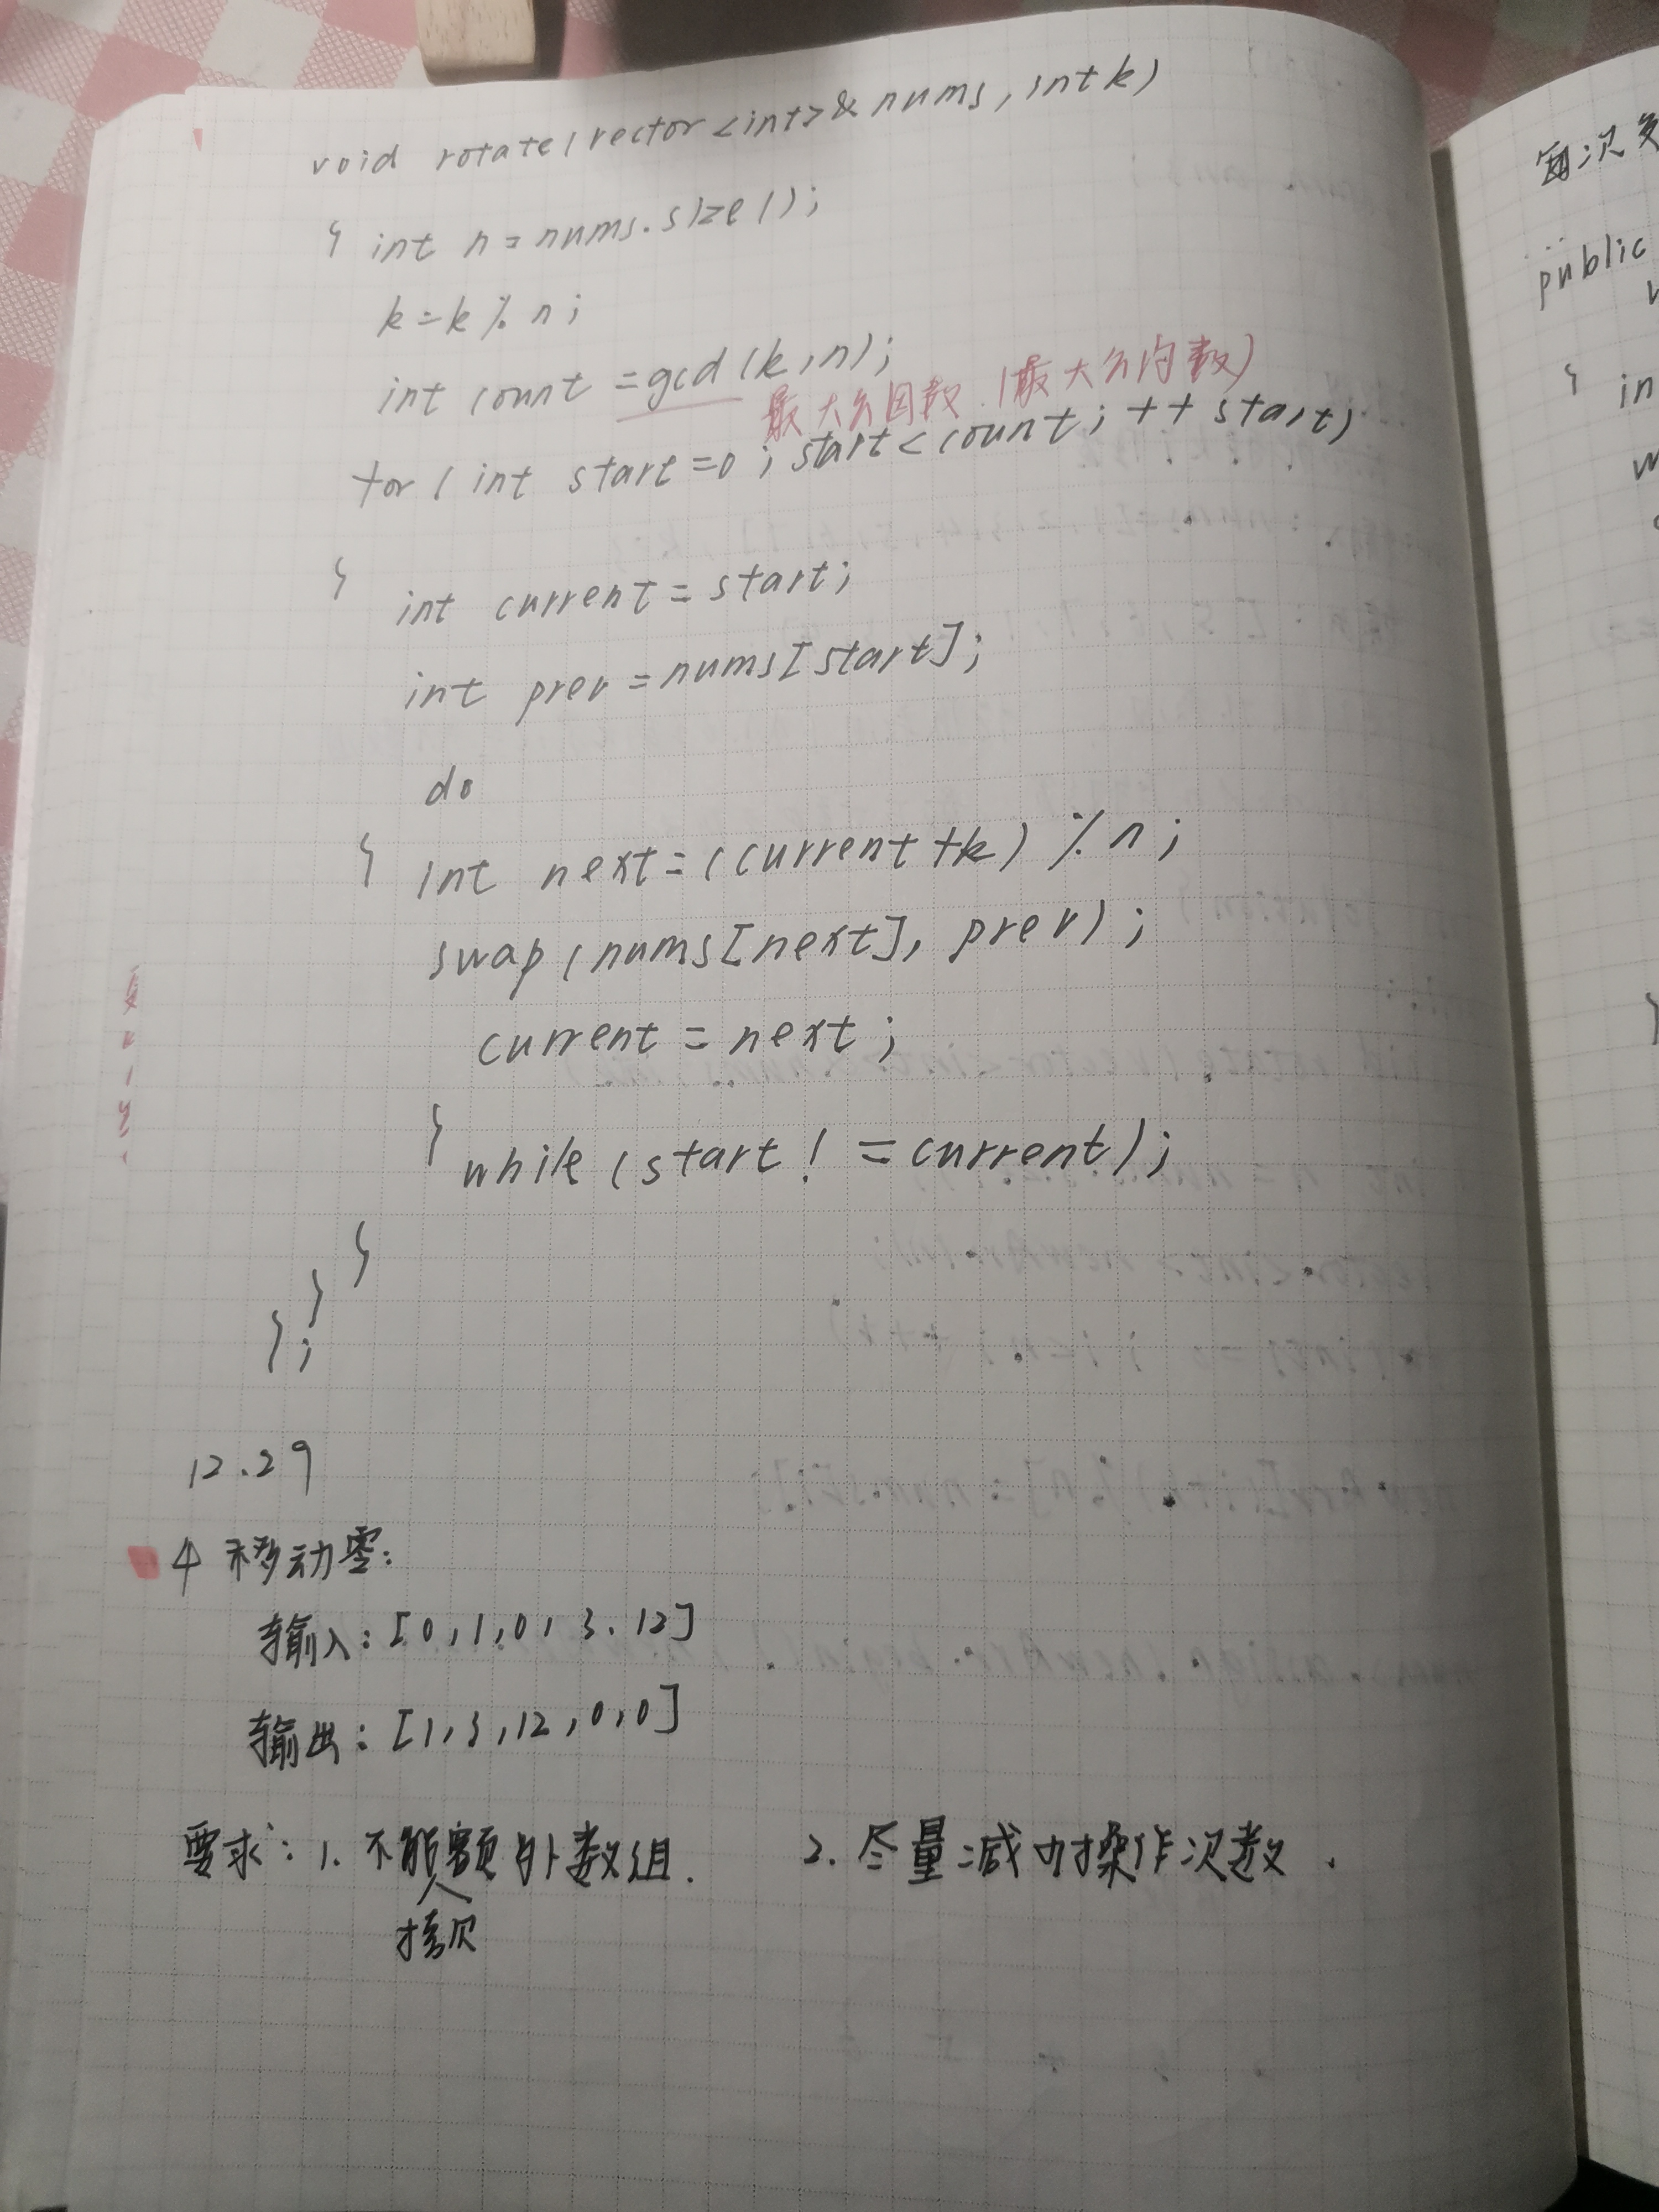 void rotate(vector<int>& nums, int k)
{ int n = nums.size();
k = k % n;
int count = gcd(k,n);
最大公因数.(最大公约数)
for (int start = 0; start < count; ++start)
{ int current = start;
int prev = nums[start];
do
{ int next = (current + k) % n;
swap(nums[next], prev);
current = next;
} while (start != current);
}
}
};
12.29
4 移动零:
输入: [0,1,0,3.12]
输出: [1,3,12,0,0]
要求: 1. 不能额外数组. 2. 尽量减少操作次数.
拷贝
每次
public
{ in